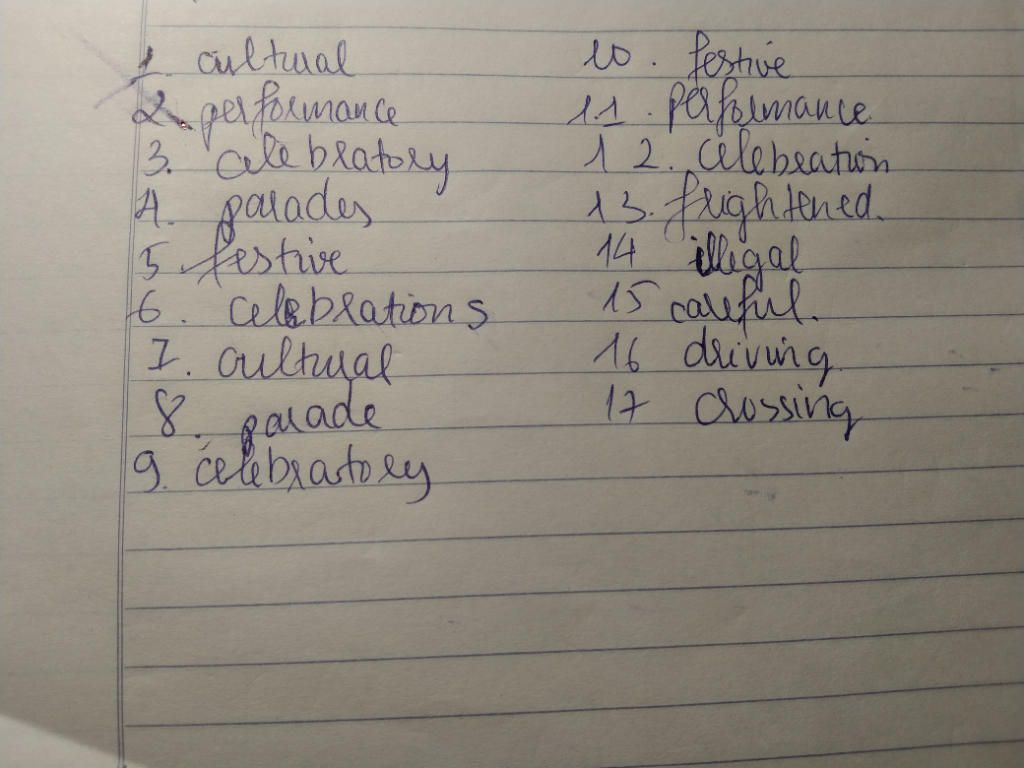 1. cultural
2. performance
3. celebratory
4. parades
5. festive
6. celebrations
7. cultural
8. parade
9. celebratory
10. festive
11. performance
12. celebration
13. frightened.
14 illegal
15 careful.
16 driving
17 crossing